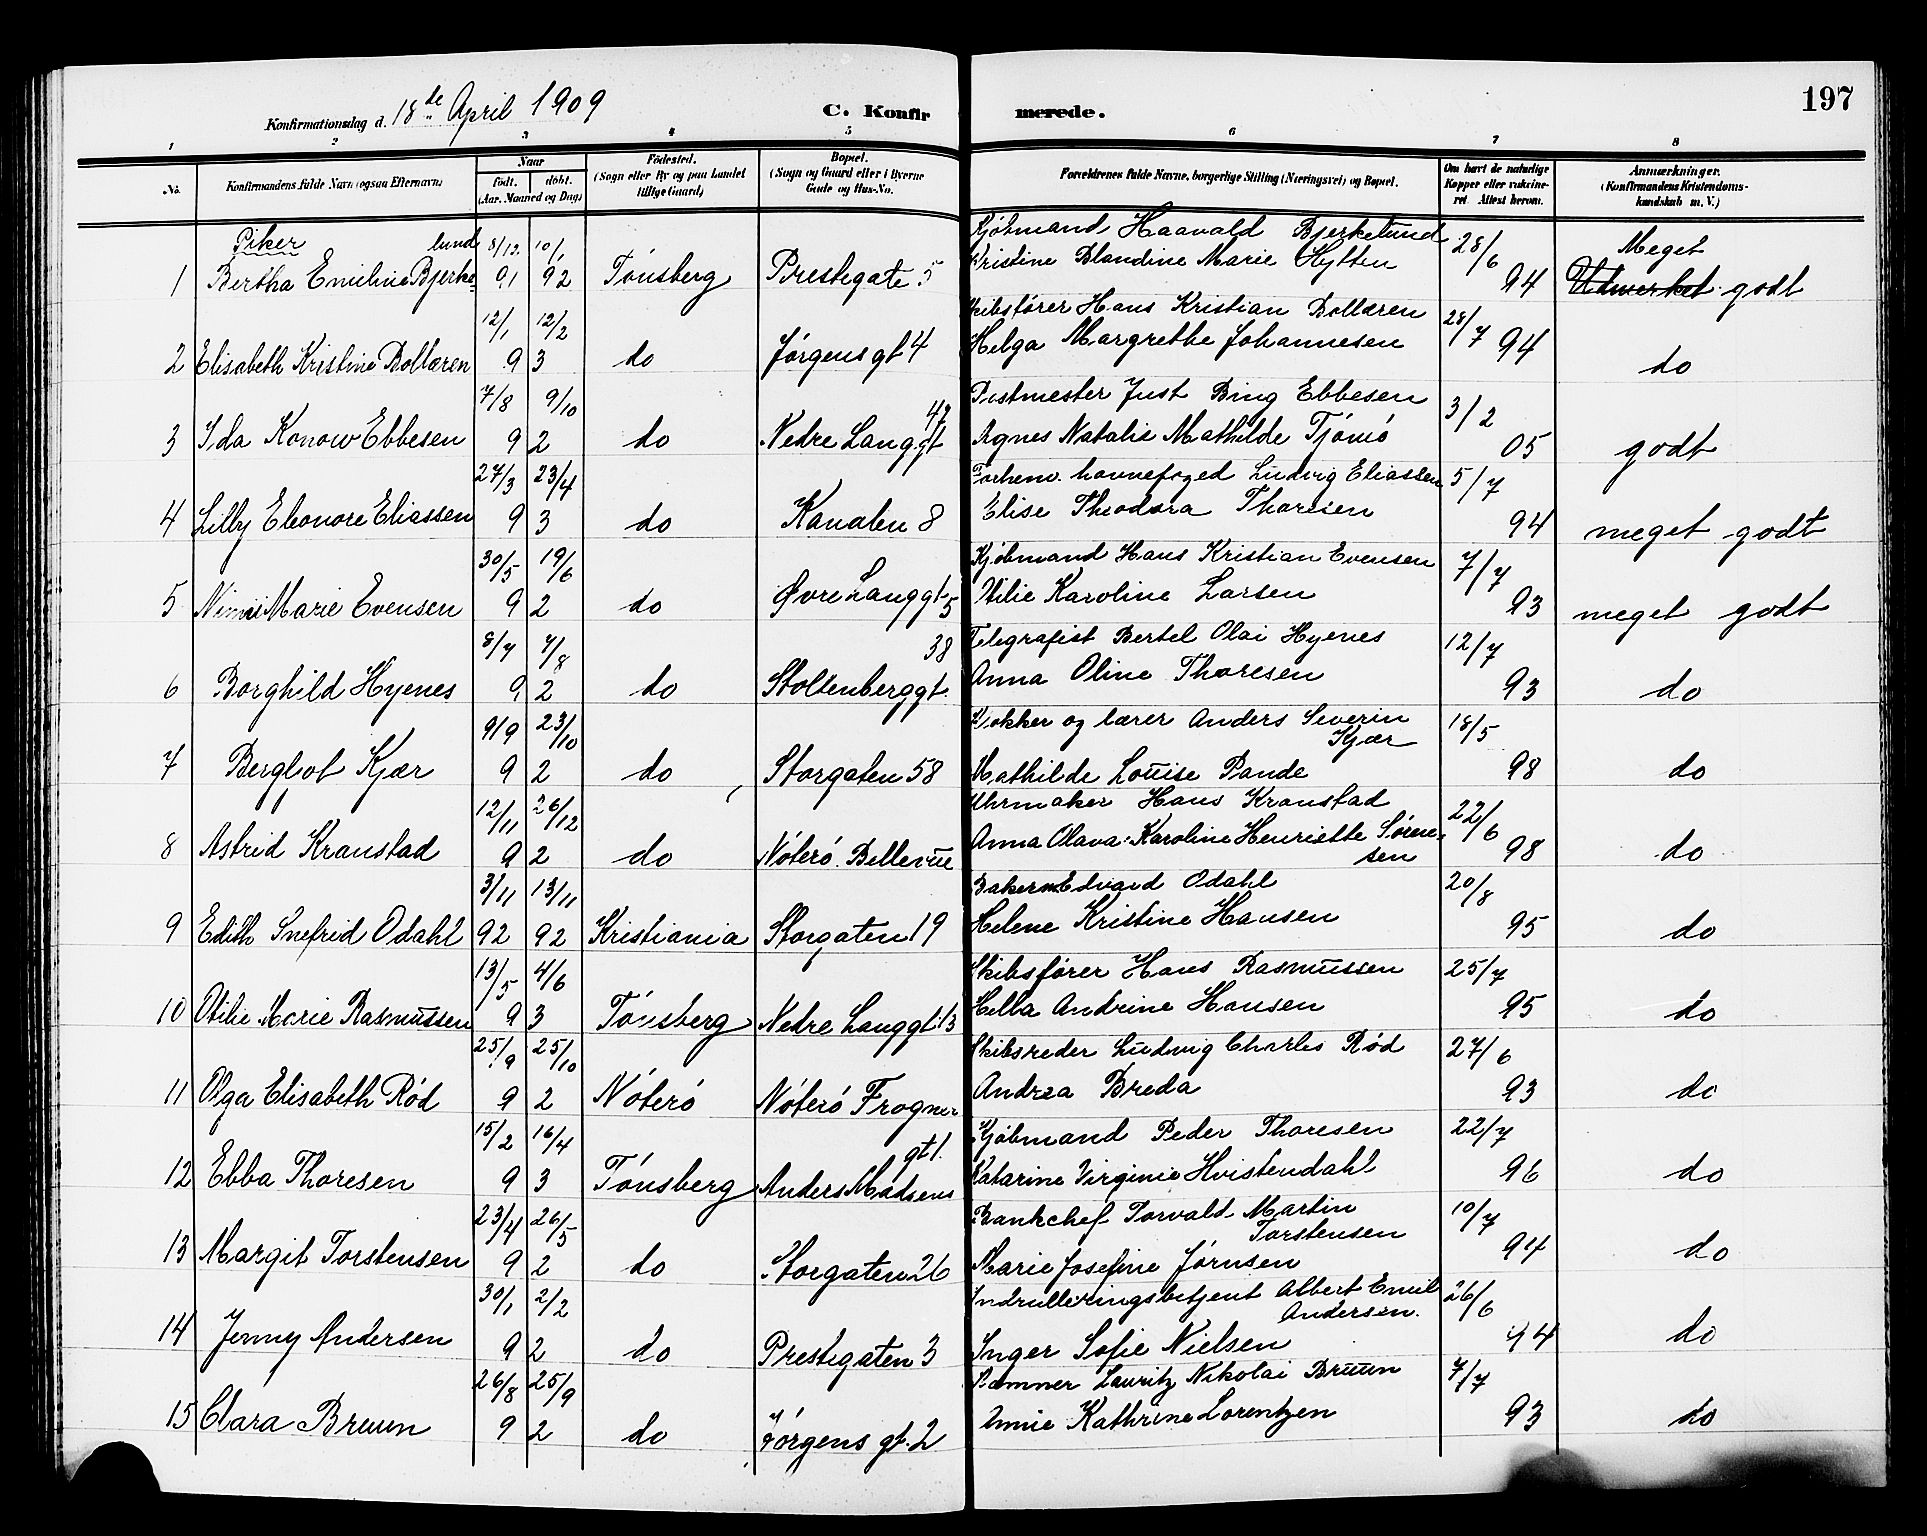 197
Konfirmationsdag d. 18de April 1909 C. Konfirmerede.
1 2 3 4 5 6 7 8
No. Konfirmandens fulde Navn (ogsaa Efternavn) Naar født. døbt. (Aar, Maaned og Dag) Fødested. (Sogn eller By og paa Landet tillige Gaard) Bopæl. (Sogn og Gaard eller i Byerne Gade og Hus-No. Forældrenes fulde Navne, borgerlige Stilling (Næringsvei) og Bopæl. Om havt de naturlige Kopper eller vaksineret. Attest herom. Anmærkninger. (Konfirmandens Kristendomskundskab m. V.)
Piker
1 Bertha Emiline Bjerkelund 8/12. 91 10/1 92 Tönsberg Prestegate 5 Kjöbmand Haavald Bjerkelund 28/6 94 Meget
Kristine Blandine Marie Hytten Udmerket godt
2 Elisabeth Kristine Bollæren 12/1 12/2 93 do Jörgensgt 4 Skibsförer Hans Kristian Bollæren 28/7 94 do
Helga Margrethe Johannesen
3 Ida Konow Ebbesen 7/8 9/10 92 do Nedre Langgt 42 Postmester Just Bing Ebbesen 3/2 05 godt
Agnes Natalie Mathilde Tjömö
4 Lilly Eleonore Eliassen 27/3 23/4 93 do Kanalen 8 Forhenv. havnefoged Ludvig Eliassen 5/7 94 meget godt
Elise Theodora Thoresen
5 Nimi Marie Evensen 30/5 19/6 92 do Øvre Langgt 5 Kjöbmand Hans Kristian Evensen 7/7 93 meget godt
Otilie Karoline Larsen
6 Borghild Hyenes 8/7 7/8 92 do Stoltenberggt. 38 Telegrafist Bertel Olai Hyenes 12/7 93 do
Anna Oline Thoresen
7 Bergljot Kjær 9/9 23/10 92 do Storgaten 58 Klokker og lærer Anders Severin Kjær 18/5 98 do
Mathilde Louise Pande
8 Astrid Kranstad 12/11 26/12 92 do Nöterö Bellevue Uhrmaker Hans Kranstad 22/6 98 do
Anna Olava Karoline Henriette Sörensen
9 Edith Snefrid Odahl 3/11 92 13/11 92 Kristiania Storgaten 19 Bakerm Edvard Odahl 20/8 95 do
Helene Kristine Hansen
10 Otilie Marie Rasmussen 13/5 4/6 93 Tönsberg Nedre Langgt 13 Skibsförer Hans Rasmussen 25/7 95 do
Hella Andrine Hansen
11 Olga Elisabeth Röd 25/9 25/10 92 Nöterö Nöterö Frogner Skibsreder Ludvig Charles Röd 27/6 93 do
Andrea Breda
12 Ebba Thoresen 15/2 16/4 93 Tönsberg Anders Madsens gt 1. Kjöbmand Peder Thoresen 22/7 96 do
Katarine Virginie Hvistendahl
13 Margit Torstensen 23/4 26/5 92 do Storgaten 26 Bankchef Torvald Martin Torstensen 10/7 94 do
Marie Josefine Jörnsen
14 Jenny Andersen 30/1 2/2 92 do Prestegaten 3 Indrulleringsbetjent Albert Emil Andersen. 26/6 94 do
Inger Sofie Nielsen
15 Clara Bruun 26/8 25/9 92 do Jörgens gt. 2 Lauritz Nikolai Bruun 7/7 93 do
Annie Kathrine Lorentzen